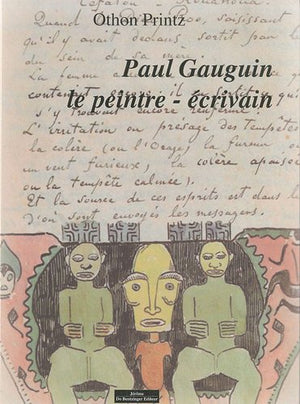 Othon Printz
qu'il y avait dedans, sortit par
du sein de sa mère.
Paul Gauguin
La femme a
le peintre - écrivain
L'irritation ou presage des Tempêtes
la colère (ou l'Orage), la fureur ou
un vent furieux, la colère apaisée
ou la tempête calmée).
Et la source de ces esprits est dans le
d'où sont envoyés les messagers.
Jérôme
Do Bentzinger Editeur